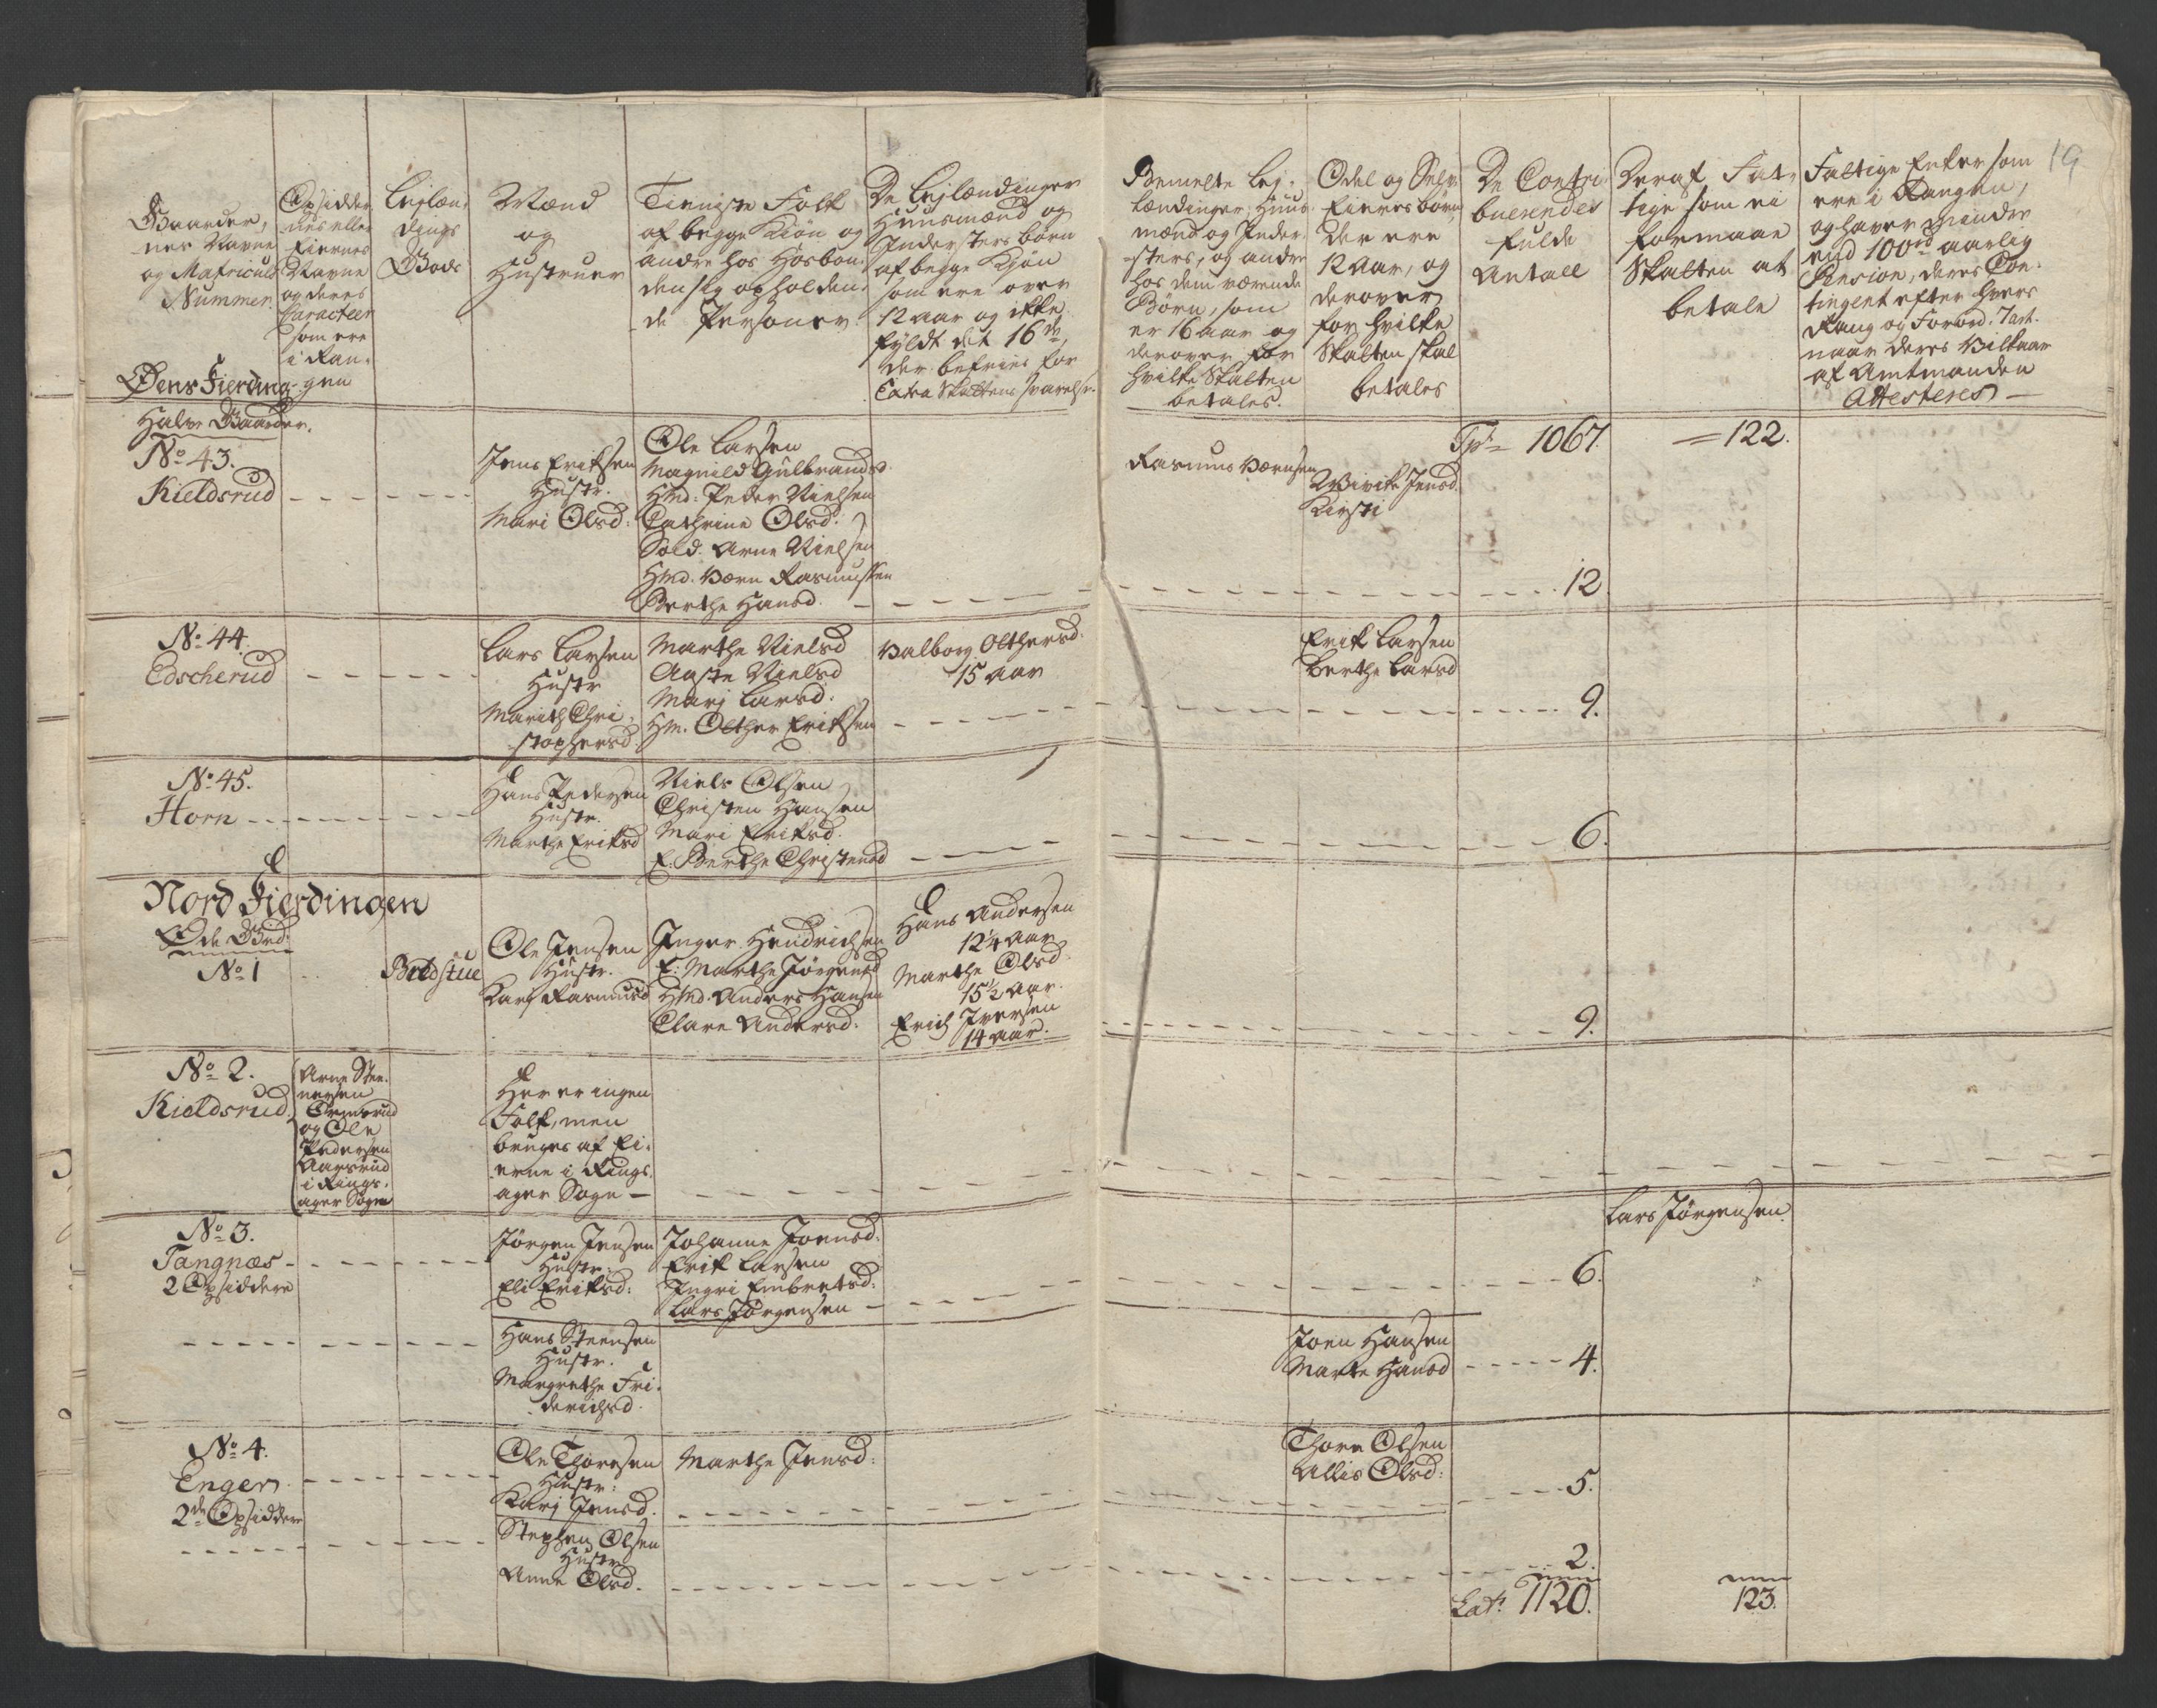 19
Gaarder,
nes Navne
og Matricul
Nummer.
Opsidder
nes eller
Eiernes
Navne
og deres
Caracteer
som ere
i Ran-
gen
Leylæn-
dings
Bøds
Mænd
og
Hustruer
Tieniste Folk
af begge Kiøn og
andre hos Hosbon-
den sig opholden-
de Personer.
De Leylændinger
Huusmænd og
Indersters børn
af begge Kiøn
som ere over
12 Aar og ikke
fyldt det 16de,
der befries for
Extra Skattens svarelse.
Bemelte Ley-
lændinger, Huus
mænd og Inder-
sters, og andre
hos dem værende
Børn, som
er 16 Aar og
derover for
hvilke Skatten
betales.
Odel og Selv
Eieres børn,
der ere
12 Aar, og
derover
for hvilke
Skatten skal
betales
De Contri-
buerendes
fulde
Antall
Deraf Fat-
tige som ei
formaae
Skatten at
betale
Fattige Enker som
ere i Rangen,
og haver mindre
end 100 rd aarlig
Pension, deres Con-
tingent efter hvers
Rang og Forord. 7 art.
naar deres Vilkaar
af Amtmanden
Attesteres —
Øens Fierding
Halve Gaarder.
Tp = 1067.
= 122.
No 43.
Kieldsrud
Jens Eriksen
Hustr.
Mari Olsd:
Ole Larsen
Magnild Gulbrandsd.
Hmd: Peder Nielsen
Cathrine Olsd:
Sold. Arne Nielsen
Hmd. Bærn Rasmussen
Berthe Hansd.
Rasmus Bærnsen
Wivike Jensd.
Kirsti
12
No 44.
Edscherud
Lars Larsen
Hustr
Marith Chri-
stophersd
Marthe Nielsd
Aaste Nielsd
Mari Larsd.
Hm. Olther Eriksen
Valborg Olthersd.
15 Aar
Erik Larsen
Berthe Larsd
9.
No 45.
Horn
Hans Pedersen
Hustr.
Marthe Eriksd
Niels Olsen
Christen Hansen
Mari Eriksd.
E. Berthe Christensd
6.
Nord Fierdingen
Øde Grd:
No 1
Bredstue
Ole Jensen
Hustr.
Kari Rasmusd
Inger Hendrichsen
E. Marthe Jørgensd
Hmd. Anders Hansen
Clare Andersd:
Hans Andersen
12 1/4 Aar
Marthe Olsd
15 1/2 Aar.
Erich Iversen
14 Aar.
9.
No 2.
Kieldsrud.
Arne Stee-
nersen
Ormsrud
og Ole
Pedersen
Aarsrud
i Rings-
ager Sogn
Her er ingen
Folk, men
bruges af Ei-
erne i Rings-
ager Sogn —
No 3.
Tangnæs
2 Opsiddere
Jørgen Jensen
Hustr:
Eli Eriksd:
Johanne Joensd:
Erik Larsen
Ingri Embretsd:
Lars Jørgensen
Lars Jørgensen.
6.
Hans Steensen
Hustr.
Margrethe Fri-
derichsd.
Joen Hansen
Marte Hansd
4.
No 4.
Enger
2de Opsiddere
Ole Thoresen
Hustr:
Kari Jensd.
Marthe Jensd:
Thore Olsen
Allis Olsd:
5.
Stephen Olsen
Hustr
Anne Olsd.
2.
Lat: 1120.
123.